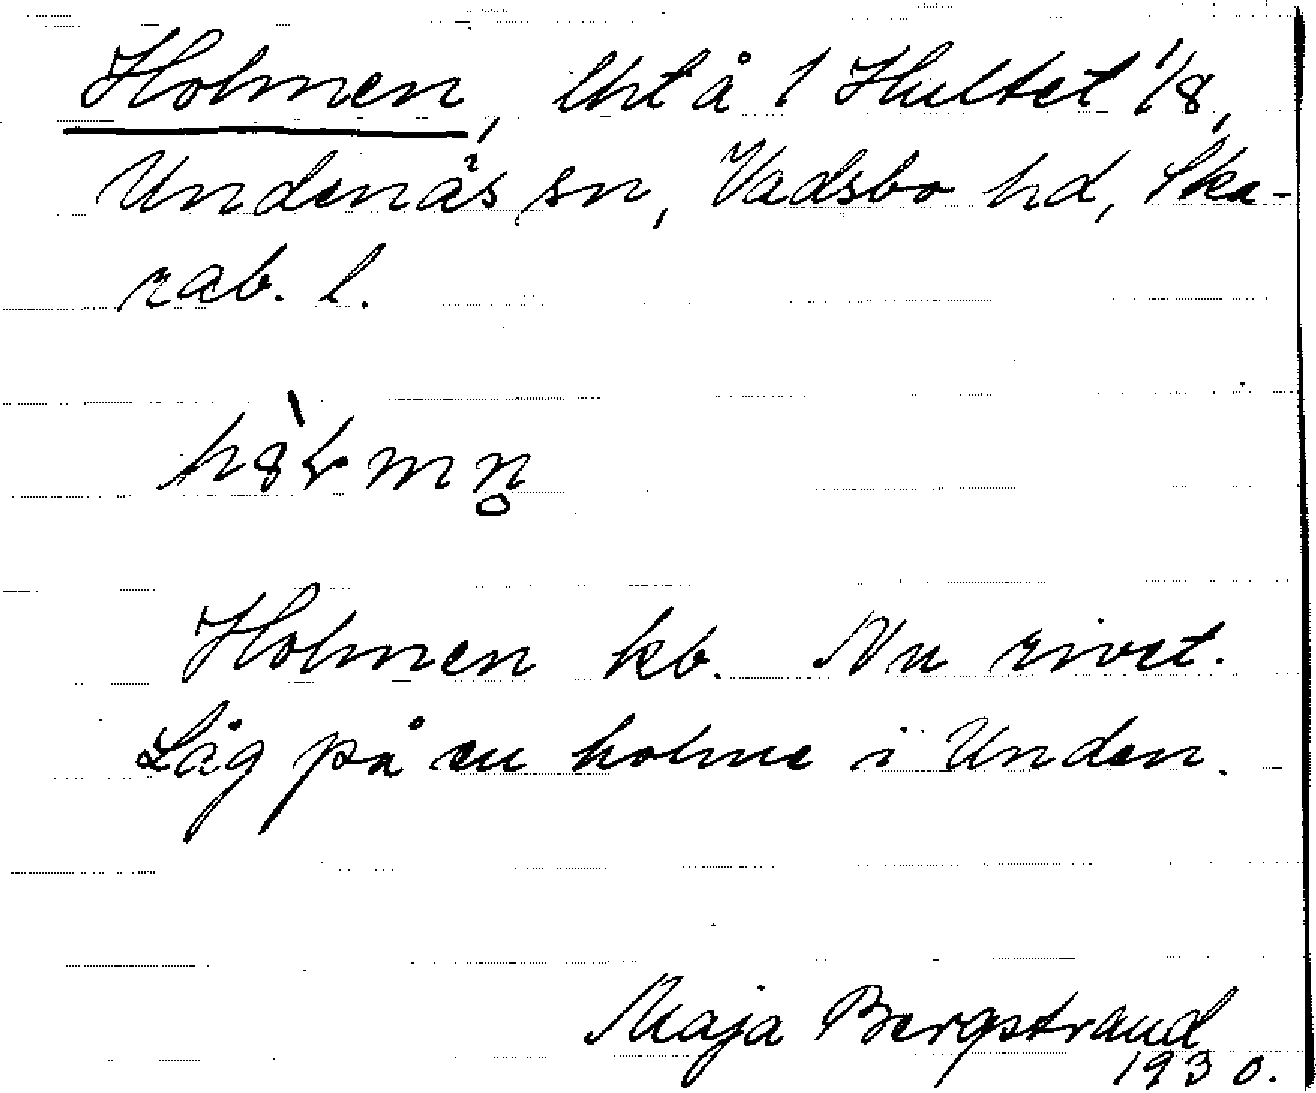 Holmen, lht å 1 Hultet 1/8,
Undenäs sn, Vadsbo hd, Ska-
rab. l.
Holmen kb. Nu rivet.
Låg på en holme i Unden.
Maja Bergstrand
1930.